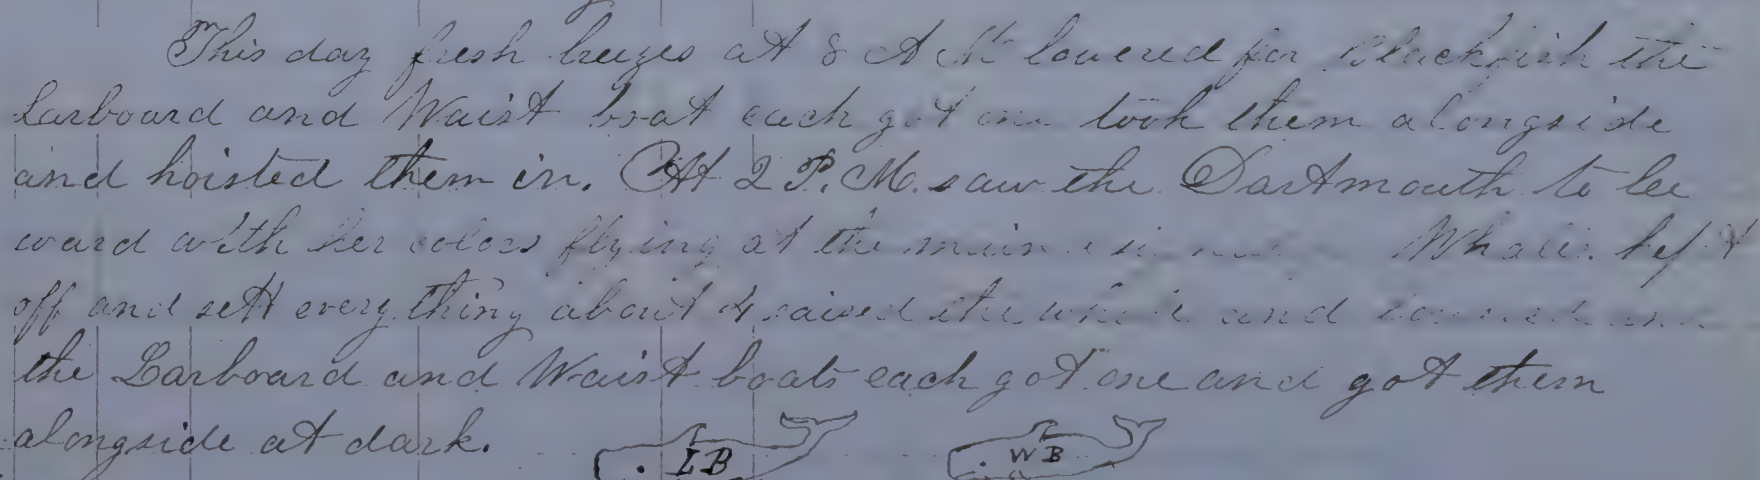 This day fresh breezes at 8 A M lowered for Blackfish the
Larboard and Waist boat each got one took them alongside
and hoisted them in. At 2 P.M. saw the Dartmouth to lee
ward with her colors flying at the main Whales. kept
off and sett every thing about 4 raised the whale and lowered and
the Larboard and Waist boats each got one and got them
alongside at dark.
LB WB